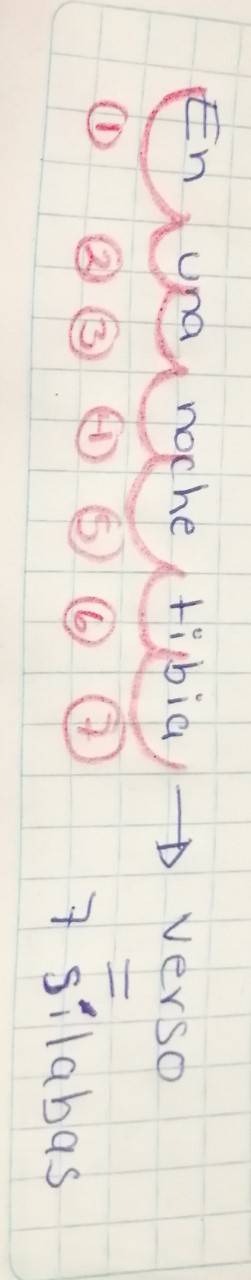 En una noche tibia → verso
① ② ③ ④ ⑤ ⑥ ⑦ =
7 sílabas